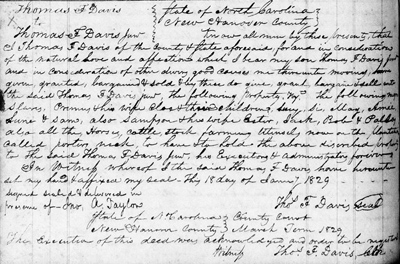 Thomas F Davis State of North Carolina
To New Hanover County
Thomas F Davis Junr Know all men by these presents, that
I Thomas F Davis of the County & State aforesaid, for and in consideration
of the natural love and affection which I bear my son Thomas F Davis Junr
and in consideration of other divers good causes me thereunto moving, have
given, granted, bargained & sold & by these do give, grant, bargain & sell unto
the said Thomas F Davis Junr the following property, Viz the following negro
Slaves, his wife & their children, May,
& Sam, also Sampson & his wife Dick, Bob &
also all the Horses, cattle, stock farming Utensils now on the Plantation
Called neck, to have & to hold the above described
to the said Thomas F. Davis Junr, his Executors & administrators forever
In Witness whereof I the said Thomas F Davis have hereunto
set my hand & affixed my seal this 18 day of 1829
signed sealed & delivered in
presence of Jno. A. Taylor Thos F Davis seal
State of N Carolina County Court
New Hanover County March Term 1829
The Execution of this deed was acknowledged and order to be registered
Witness Thos. F. Davis, Clk